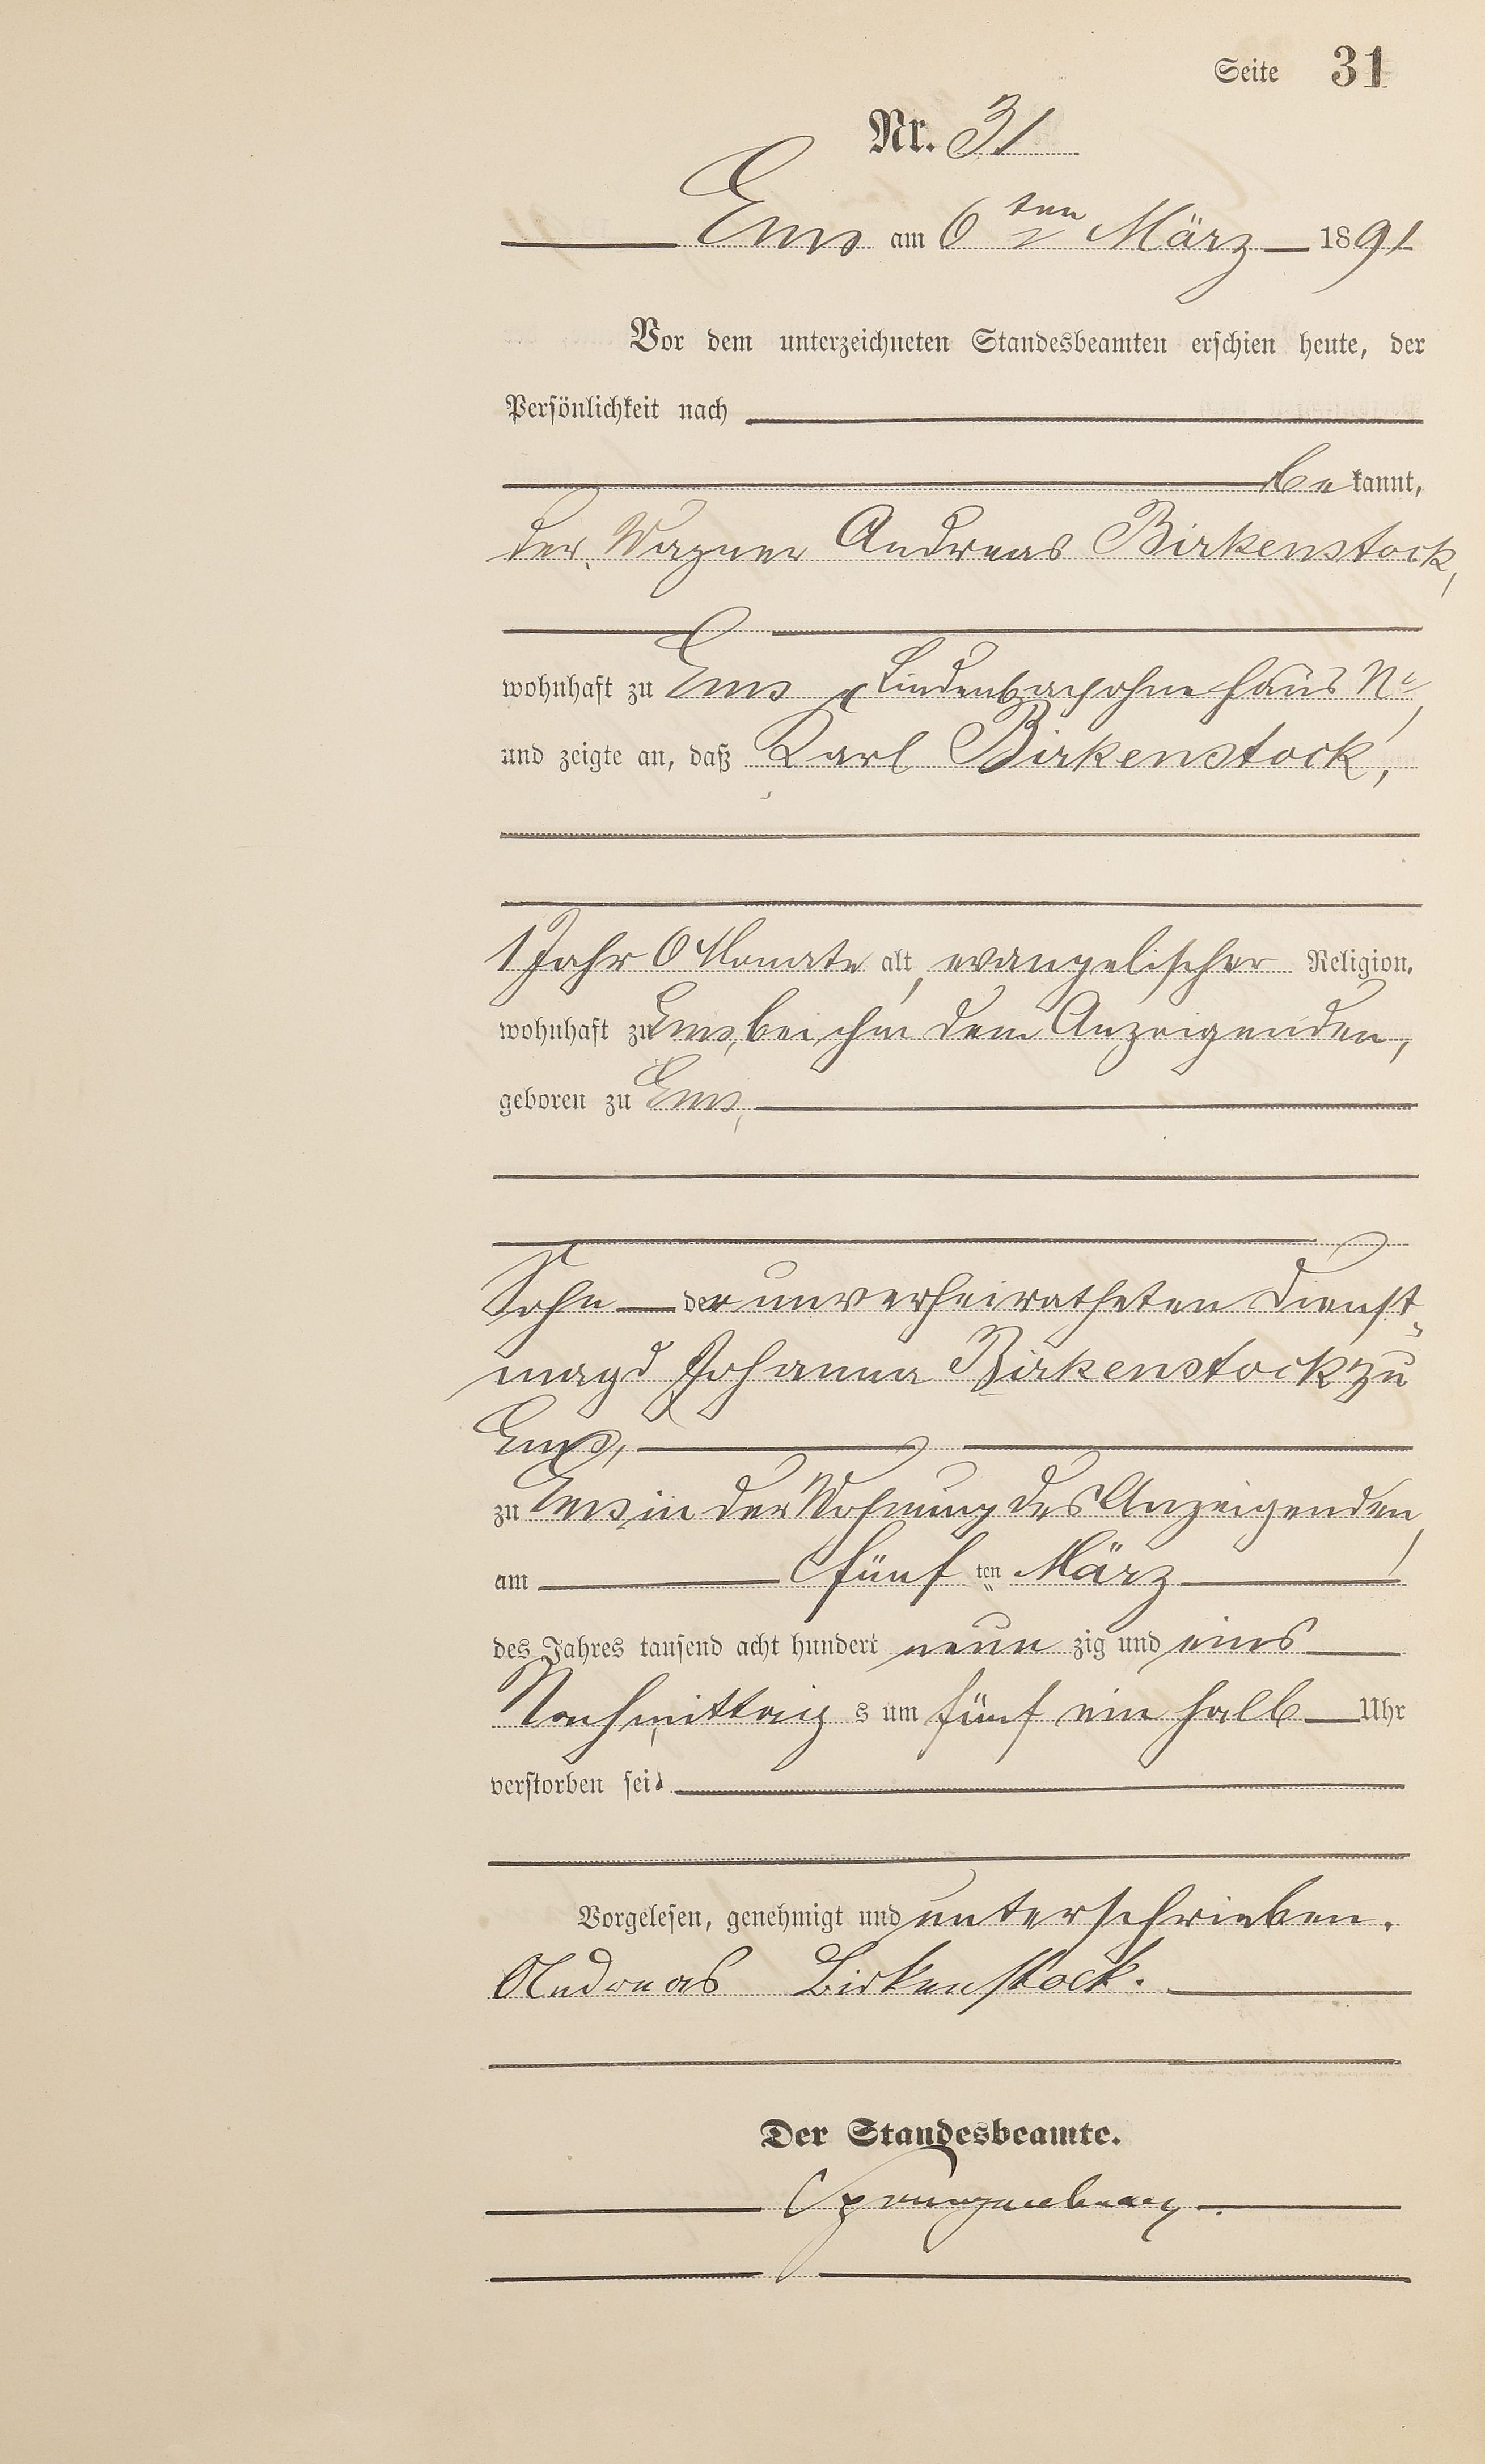 Seite 31
Nr. 31
Ems am 6 ten März 1891
Vor dem unterzeichneten Standesbeamten erschien heute, der
Persönlichkeit nach
be kannt,
der Wagner Andreas Birkenstock,
wohnhaft zu Ems, Lindenbach ohne Haus No,
und zeigte an, daß Karl Birkenstock,
1 Jahr 0 Monate alt, evangelischer Religion,
wohnhaft zu Ems, bei ihm dem Anzeigenden,
geboren zu Ems,
Sohn der unverheiratheten Dienst-
magd Johanna Birkenstock zu
Ems,
zu Ems in der Wohnung des Anzeigenden,
am fünf ten März
des Jahres tausend acht hundert neun zig und eins
Nachmittag s um fünf ein halb Uhr
verstorben sei.
Vorgelesen, genehmigt und unterschrieben.
Andreas Birkenstock.
Der Standesbeamte.